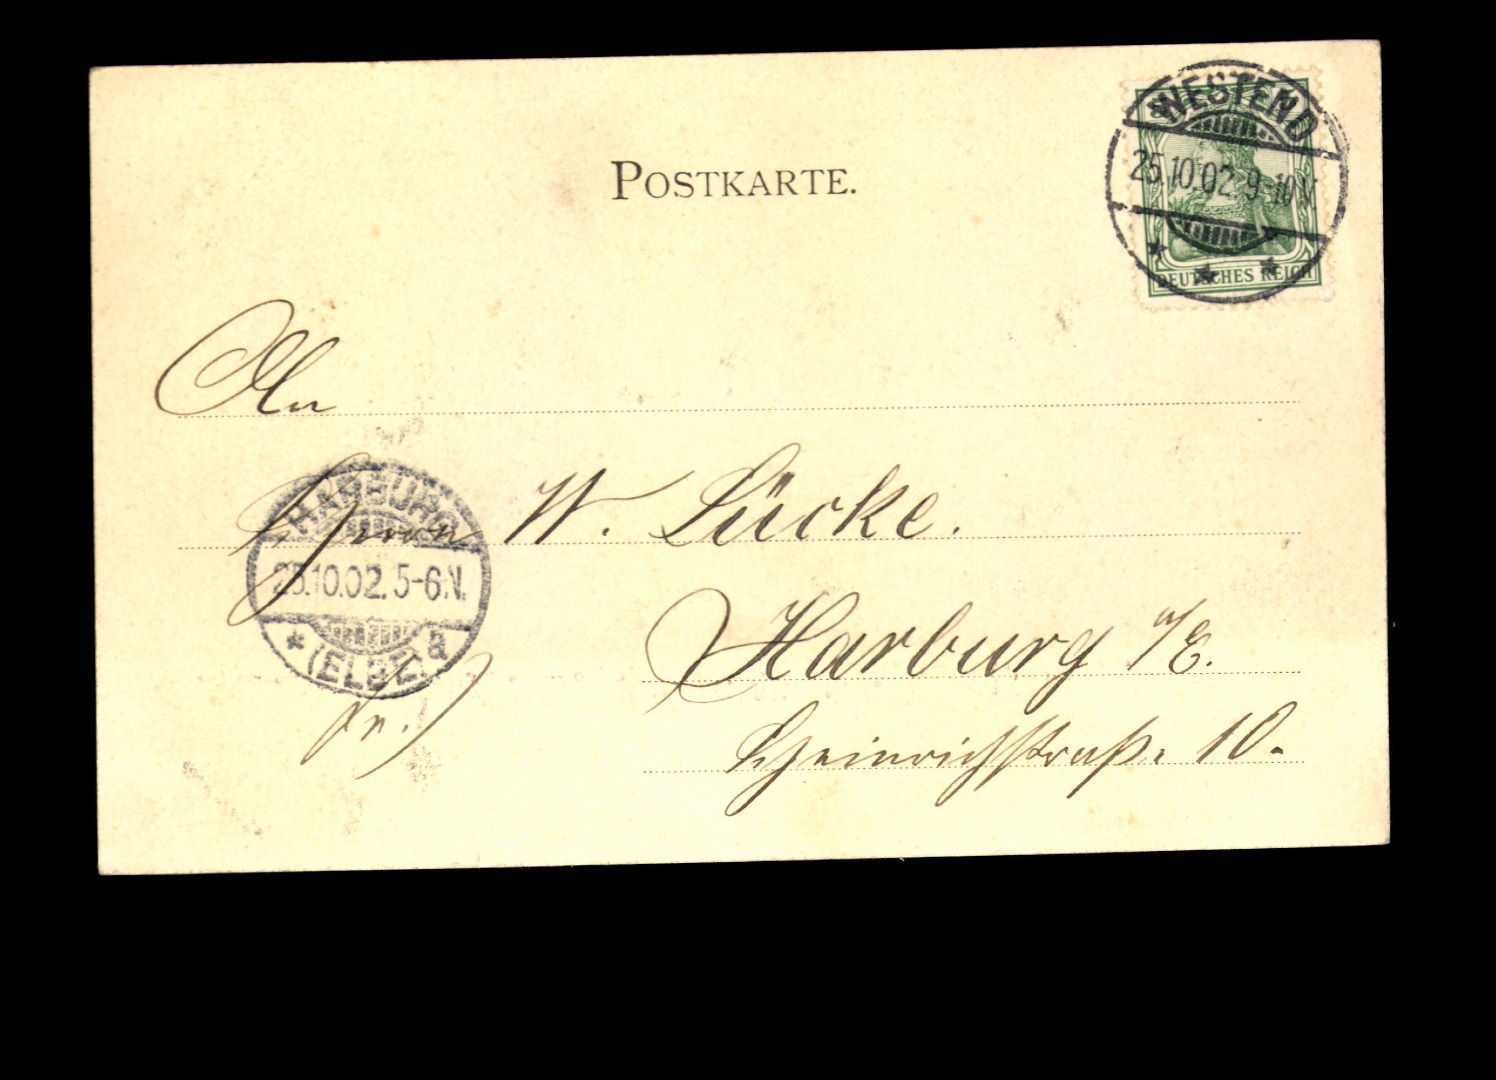 POSTKARTE.
WESTEND
25.10.02.9-10V.
DEUTSCHES REICH
An
Herrn W. Lücke.
HARBURG
25.10.02.5-6N.
* (ELBE) a
Harburg a/E.
Heinrichstraße 10.
fr.)